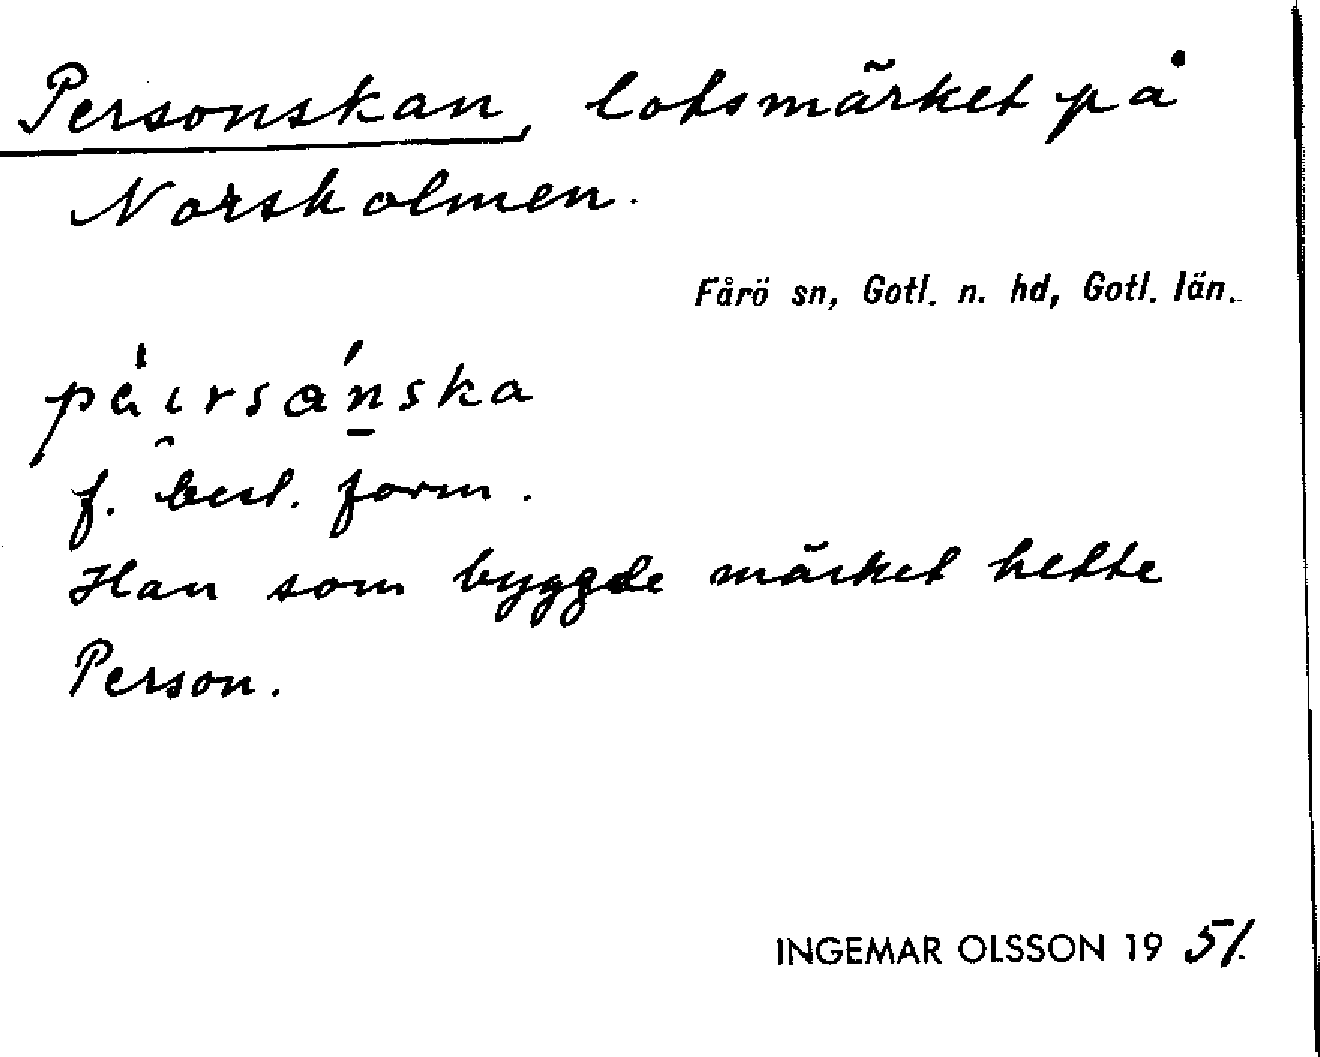 Personskan, lotsmärket på
Norsholmen.
Fårö sn, Gotl. n. hd, Gotl. län.
f. best. form.
Han som byggde märket hette
Person.
INGEMAR OLSSON 1951.